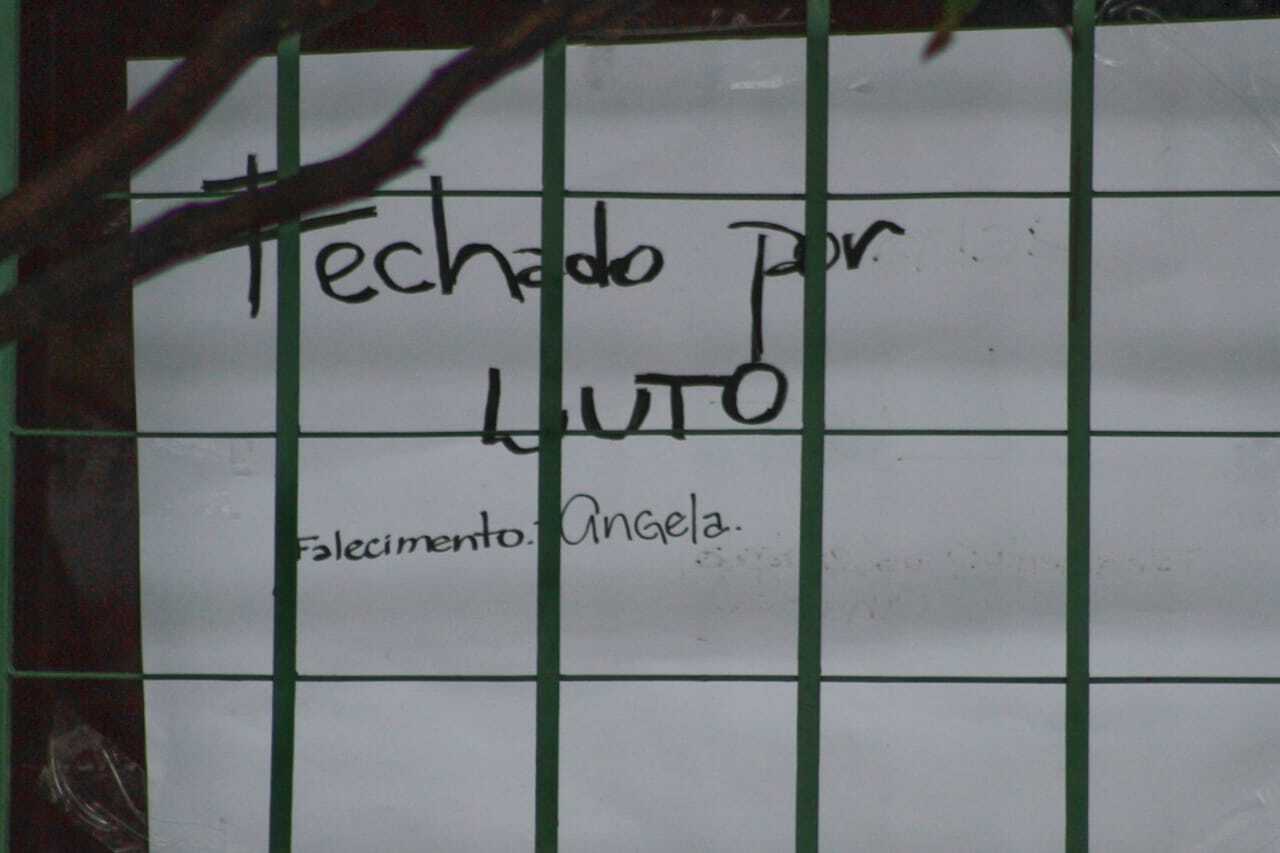 Fechado por
LUTO
Falecimento: Angela.